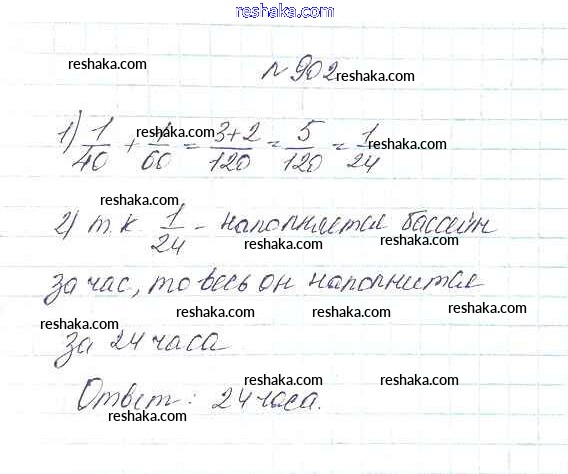 reshaka.com
reshaka.com
№902 reshaka.com
1) 1/40 + 1/60 = 3+2/120 = 5/120 = 1/24
reshaka.com reshaka.com
reshaka.com reshaka.com
2) т.к 1/24 - наполняется бассейн
reshaka.com reshaka.com
за час, то весь он наполнится
reshaka.com reshaka.com
reshaka.com
за 24 часа
reshaka.com reshaka.com
Ответ: 24 часа.
reshaka.com